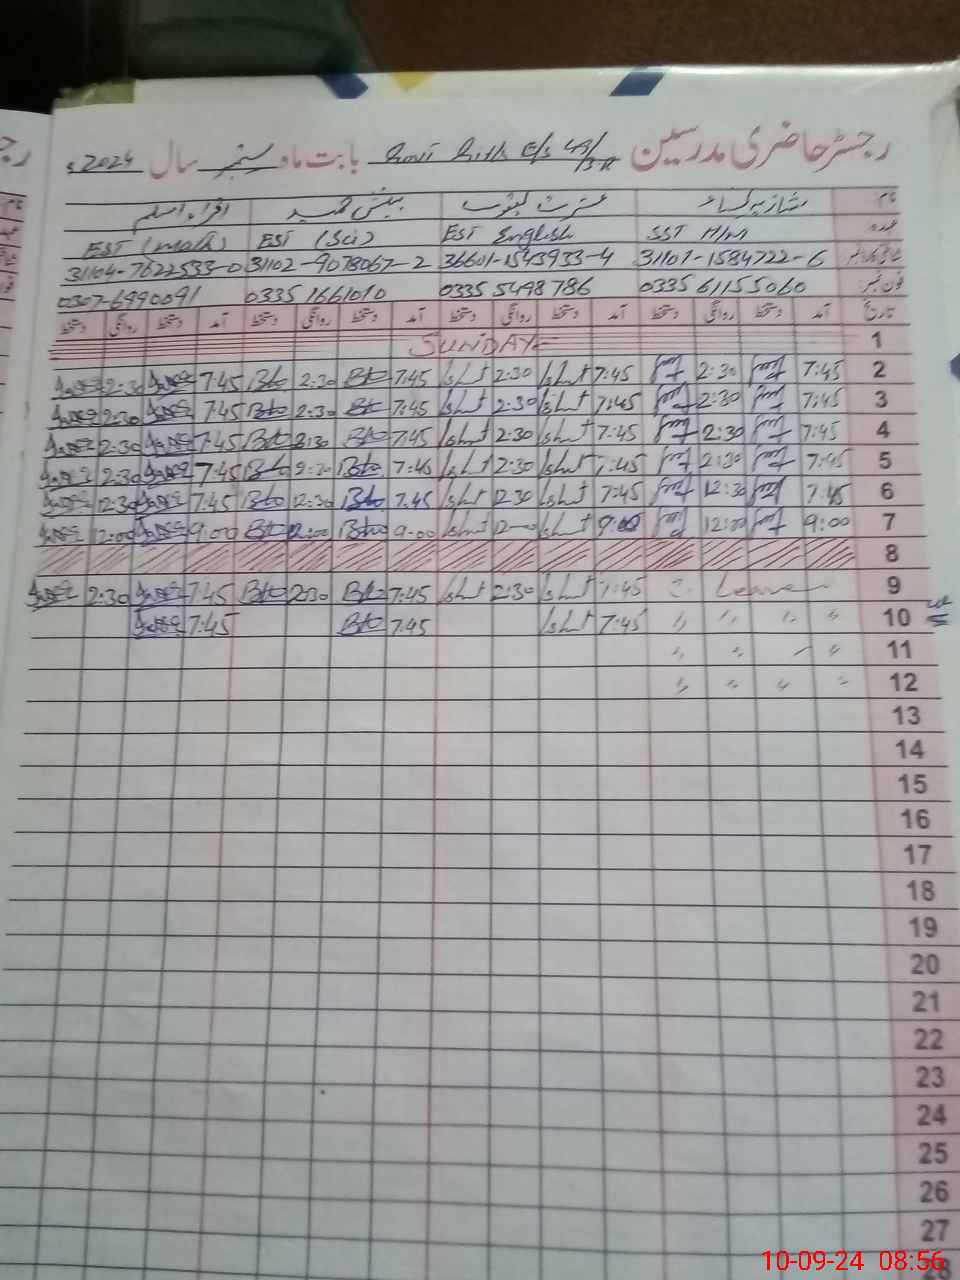 رجسٹر حاضری مدرسین Govt Girls E/S 49/3-R بابت ماہ ستمبر سال 2024ء
نام شازیہ عشرت یعقوب بلقیس حمید اقراء اسلم
عہدہ SST H/M EST English EST (Sci) EST (Math)
شناختی کارڈ نمبر 31101-1584722-6 36601-1543933-4 31102-9078067-2 31104-7622533-0
فون نمبر 0335 61155060 0335 5498786 0335 1661010 0307-6990091
تاریخ آمد دستخط روانگی دستخط آمد دستخط روانگی دستخط آمد دستخط روانگی دستخط آمد دستخط روانگی دستخط
1 SUNDAY
2 7:45 2:30 7:45 2:30 7:45 2:30 7:45 2:30
3 7:45 2:30 7:45 2:30 7:45 2:30 7:45 2:30
4 7:45 2:30 7:45 2:30 7:45 2:30 7:45 2:30
5 7:45 2:30 7:45 2:30 7:45 2:30 7:45 2:30
6 7:45 12:30 7:45 12:30 7:45 12:30 7:45 12:30
7 9:00 12:00 9:00 12:00 9:00 12:00 9:00 12:00
8
9 Leave 7:45 2:30 7:45 2:30 7:45 2:30
10 " " " " 7:45 7:45 7:45
11 " " "
12 " " " "
13
14
15
16
17
18
19
20
21
22
23
24
25
26
27
28
10-09-24 08:56